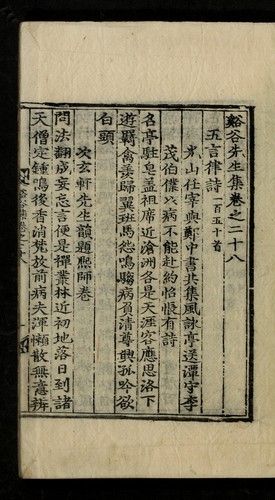 谿谷先生集卷之二十八
五言律詩 一百五十首
光山任宰與鄭中書共集風詠亭送潭守李
茂伯僕以病不能赴約悵恨有詩
名亭駐皂蓋祖席近滄洲各是天涯客應思洛下
遊羈禽羨歸翼班馬怨鳴騶病負清尊興孤吟欲
白頭
次玄軒先生韻題熙師卷
問法翻成妄忘言便是禪業林近初地落日到諸
天僧定鍾鳴後香消梵放前病夫渾懶散無意辨